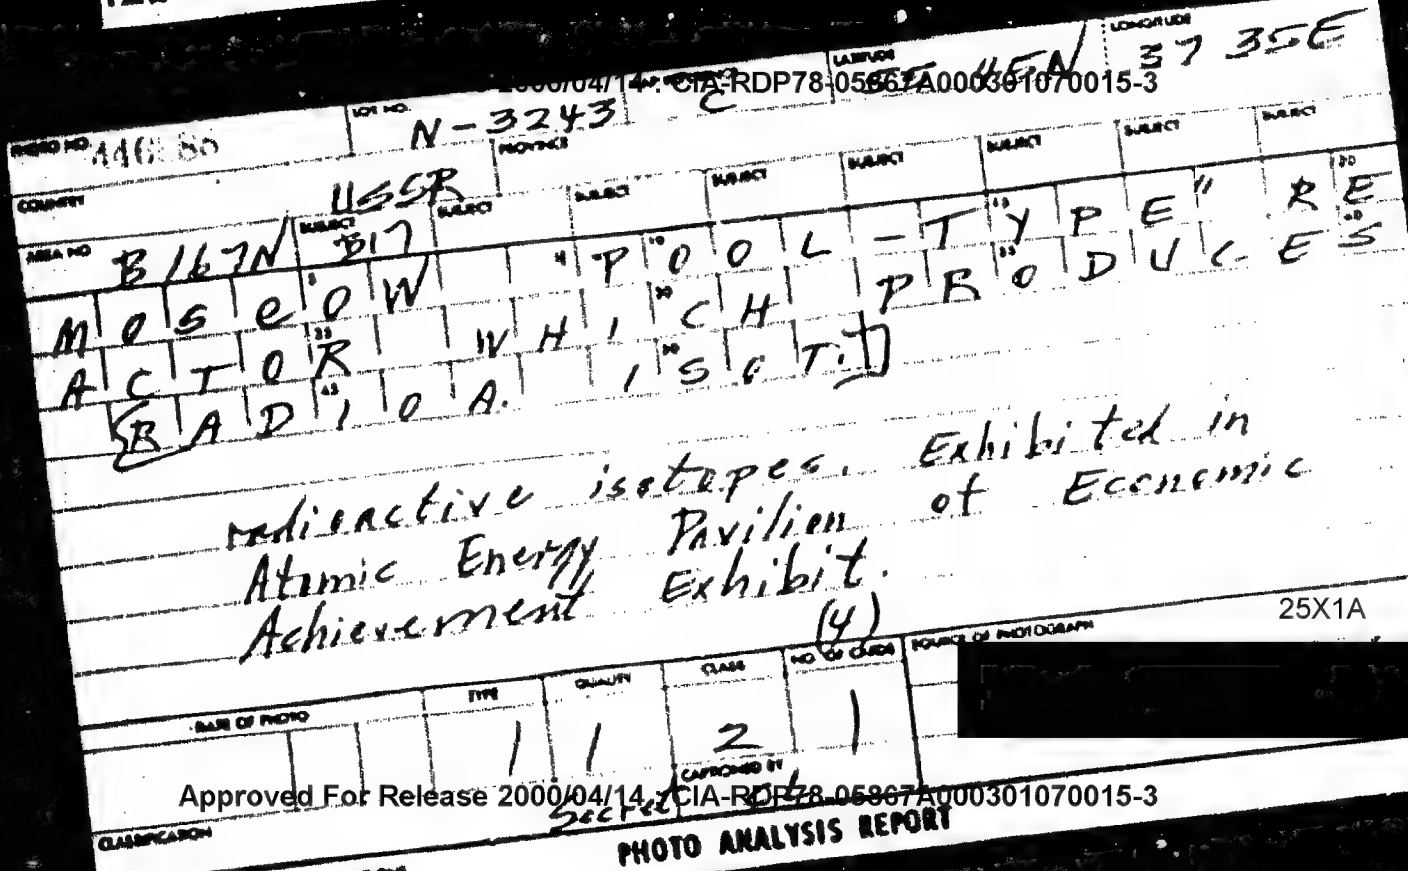 LATITUDE LONGITUDE
37 35E
2000/04/14 : CIA-RDP78-05867A000301070015-3
PHOTO NO. LOT NO. N-3243 C
COUNTRY USSR PROVINCE
AREA NO B167N SUBJECT B17 SUBJECT SUBJECT SUBJECT SUBJECT SUBJECT SUBJECT SUBJECT
MOSCOW "POOL-TYPE" RE
ACTOR WHICH PRODUCES
[RADIOA. ISOT.]
radioactive isotopes. Exhibited in
Atomic Energy Pavilion of Economic
Achievement Exhibit.
(4)
25X1A
DATE OF PHOTO TYPE QUALITY CLASS NO. OF CARDS SOURCE OF PHOTOGRAPH
1 1 2 1
CAPTIONED BY
Approved For Release 2000/04/14 : CIA-RDP78-05867A000301070015-3
CLASSIFICATION Secret
PHOTO ANALYSIS REPORT